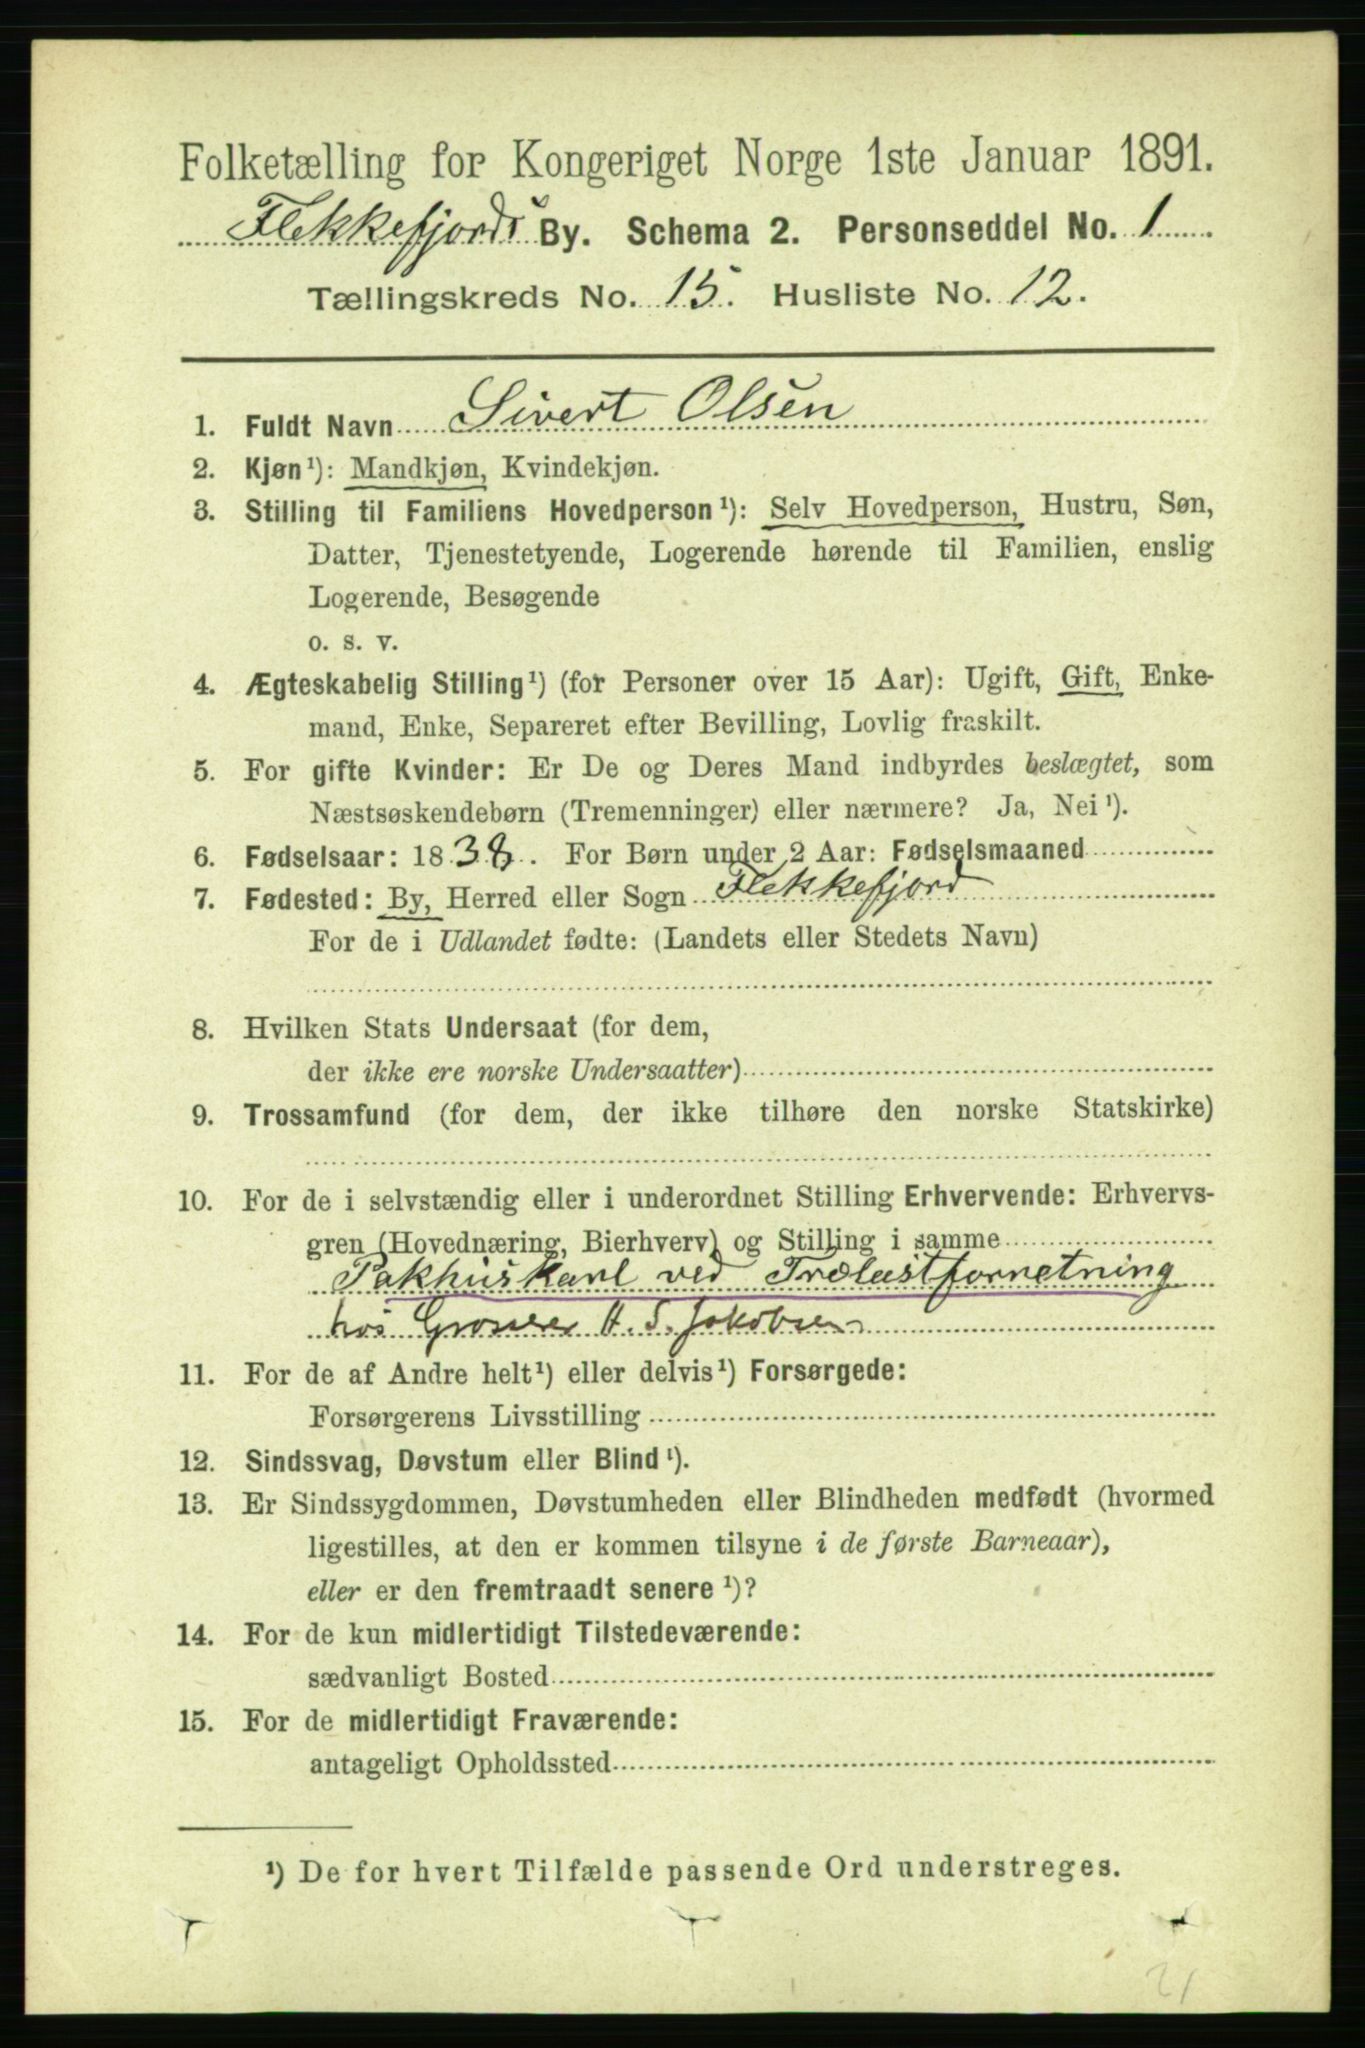 Folketælling for Kongeriget Norge 1ste Januar 1891.
Flekkefjords By. Schema 2. Personseddel No. 1
Tællingskreds No. 15. Husliste No. 12.
1. Fuldt Navn Sivert Olsen
2. Kjøn¹): Mandkjøn, Kvindekjøn.
3. Stilling til Familiens Hovedperson¹): Selv Hovedperson, Hustru, Søn,
Datter, Tjenestetyende, Logerende hørende til Familien, enslig
Logerende, Besøgende
o. s. v.
4. Ægteskabelig Stilling¹) (for Personer over 15 Aar): Ugift, Gift, Enke-
mand, Enke, Separeret efter Bevilling, Lovlig fraskilt.
5. For gifte Kvinder: Er De og Deres Mand indbyrdes beslægtet, som
Næstsøskendebørn (Tremenninger) eller nærmere? Ja, Nei¹).
6. Fødselsaar: 1838. For Børn under 2 Aar: Fødselsmaaned
7. Fødested: By, Herred eller Sogn Flekkefjord
For de i Udlandet fødte: (Landets eller Stedets Navn)
8. Hvilken Stats Undersaat (for dem,
der ikke ere norske Undersaatter)
9. Trossamfund (for dem, der ikke tilhøre den norske Statskirke)
10. For de i selvstændig eller i underordnet Stilling Erhvervende: Erhvervs-
gren (Hovednæring, Bierhverv) og Stilling i samme
Pakhuskarl ved Trælastforretning
hos Grosserer H. S. Jakobsen
11. For de af Andre helt¹) eller delvis¹) Forsørgede:
Forsørgerens Livsstilling
12. Sindssvag, Døvstum eller Blind¹).
13. Er Sindssygdommen, Døvstumheden eller Blindheden medfødt (hvormed
ligestilles, at den er kommen tilsyne i de første Barneaar),
eller er den fremtraadt senere¹)?
14. For de kun midlertidigt Tilstedeværende:
sædvanligt Bosted
15. For de midlertidigt Fraværende:
antageligt Opholdssted
¹) De for hvert Tilfælde passende Ord understreges.
21